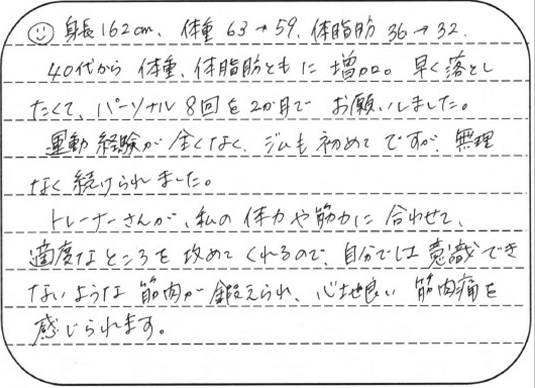 身長162cm、体重 63→59、体脂肪 36→32.
40代から 体重、体脂肪ともに 増加。早く落とし
たくて、パーソナル 8回を2か月で お願いしました。
運動経験が全くなく、ジムも初めてですが、無理
なく続けられました。
トレーナーさんが、私の体力や筋力に合わせて、
適度なところを攻めてくれるので、自分では意識でき
ないような筋肉が鍛えられ、心地良い 筋肉痛を
感じられます。